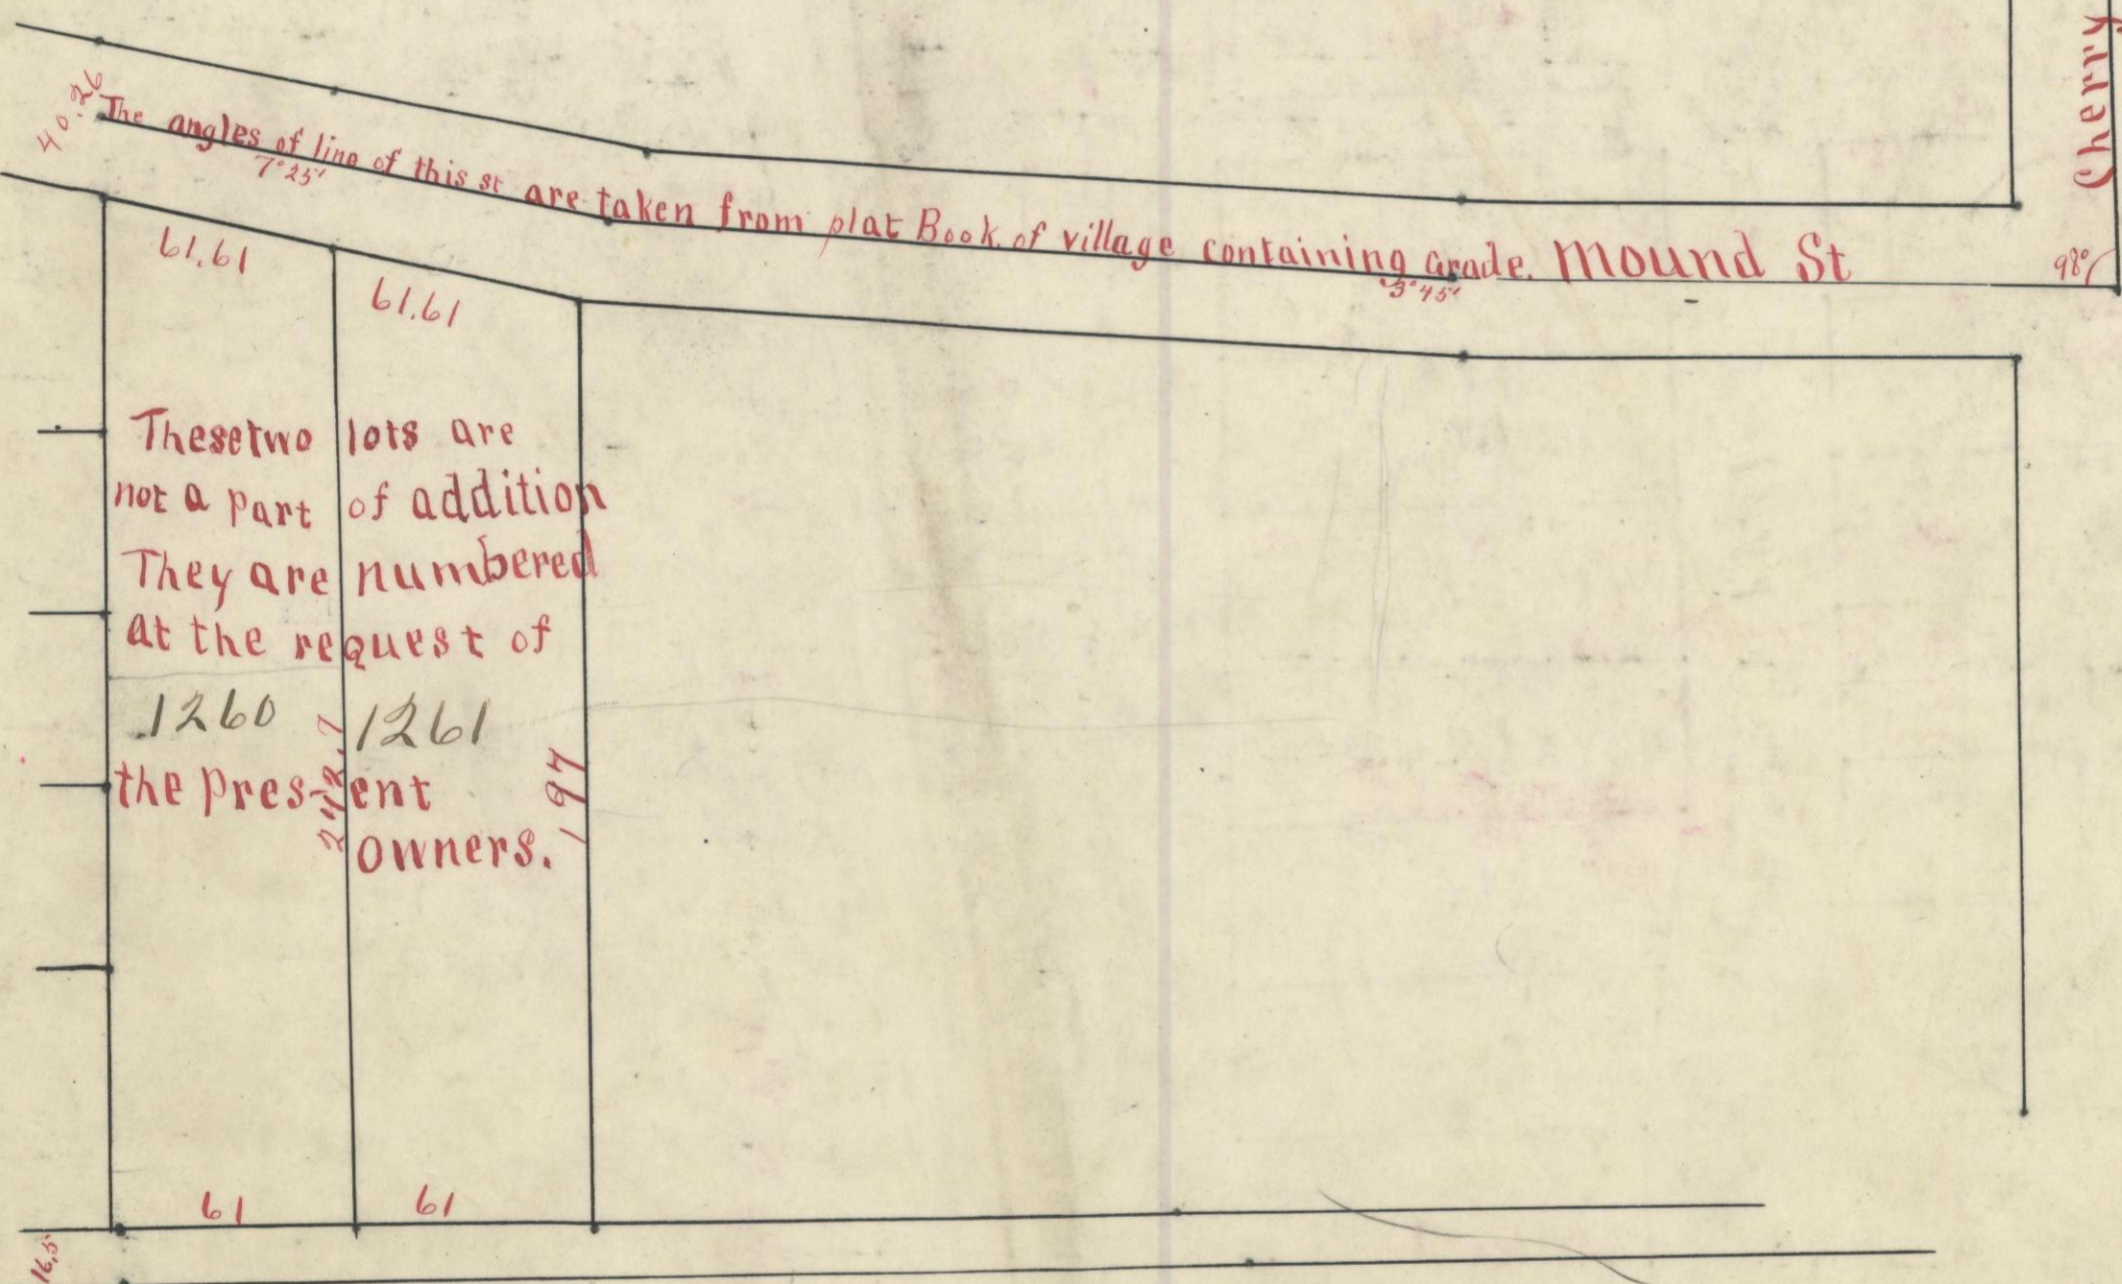 Cherry
40.26
The angles of line of this st are taken from plat Book of village containing Grade. Mound St
7°25'
3°45'
98°
61.61
61.61
These two lots are
not a part of addition
They are numbered
at the request of
1260
1261
the pres-ent
owners.
197
61
61
16,5